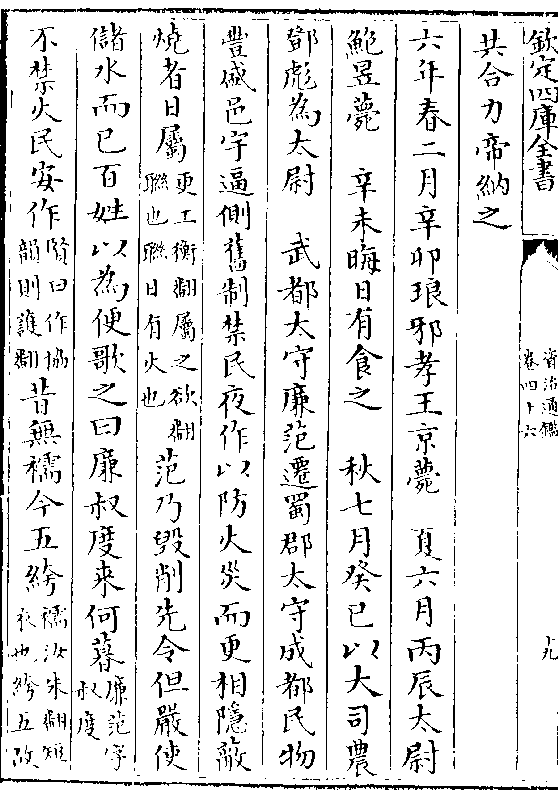 欽定四庫全書
資治通鑑
卷四十六
十九
共合力帝納之
六年春二月辛卯琅邪孝王京薨　夏六月丙辰太尉
鮑昱薨　辛未晦日有食之　秋七月癸巳以大司農
鄧彪為太尉　武都太守廉范遷蜀郡太守成都民物
豐盛邑宇逼側舊制禁民夜作以防火災而更相隱蔽
燒者日屬更工衡翻屬之欲翻聮也聮日有火也范乃毀削先令但嚴使
儲水而已百姓以為便歌之曰廉叔度來何暮廉范字叔度
不禁火民安作賢曰作協韻則護翻昔無襦今五絝襦汝朱翻短衣也絝五故